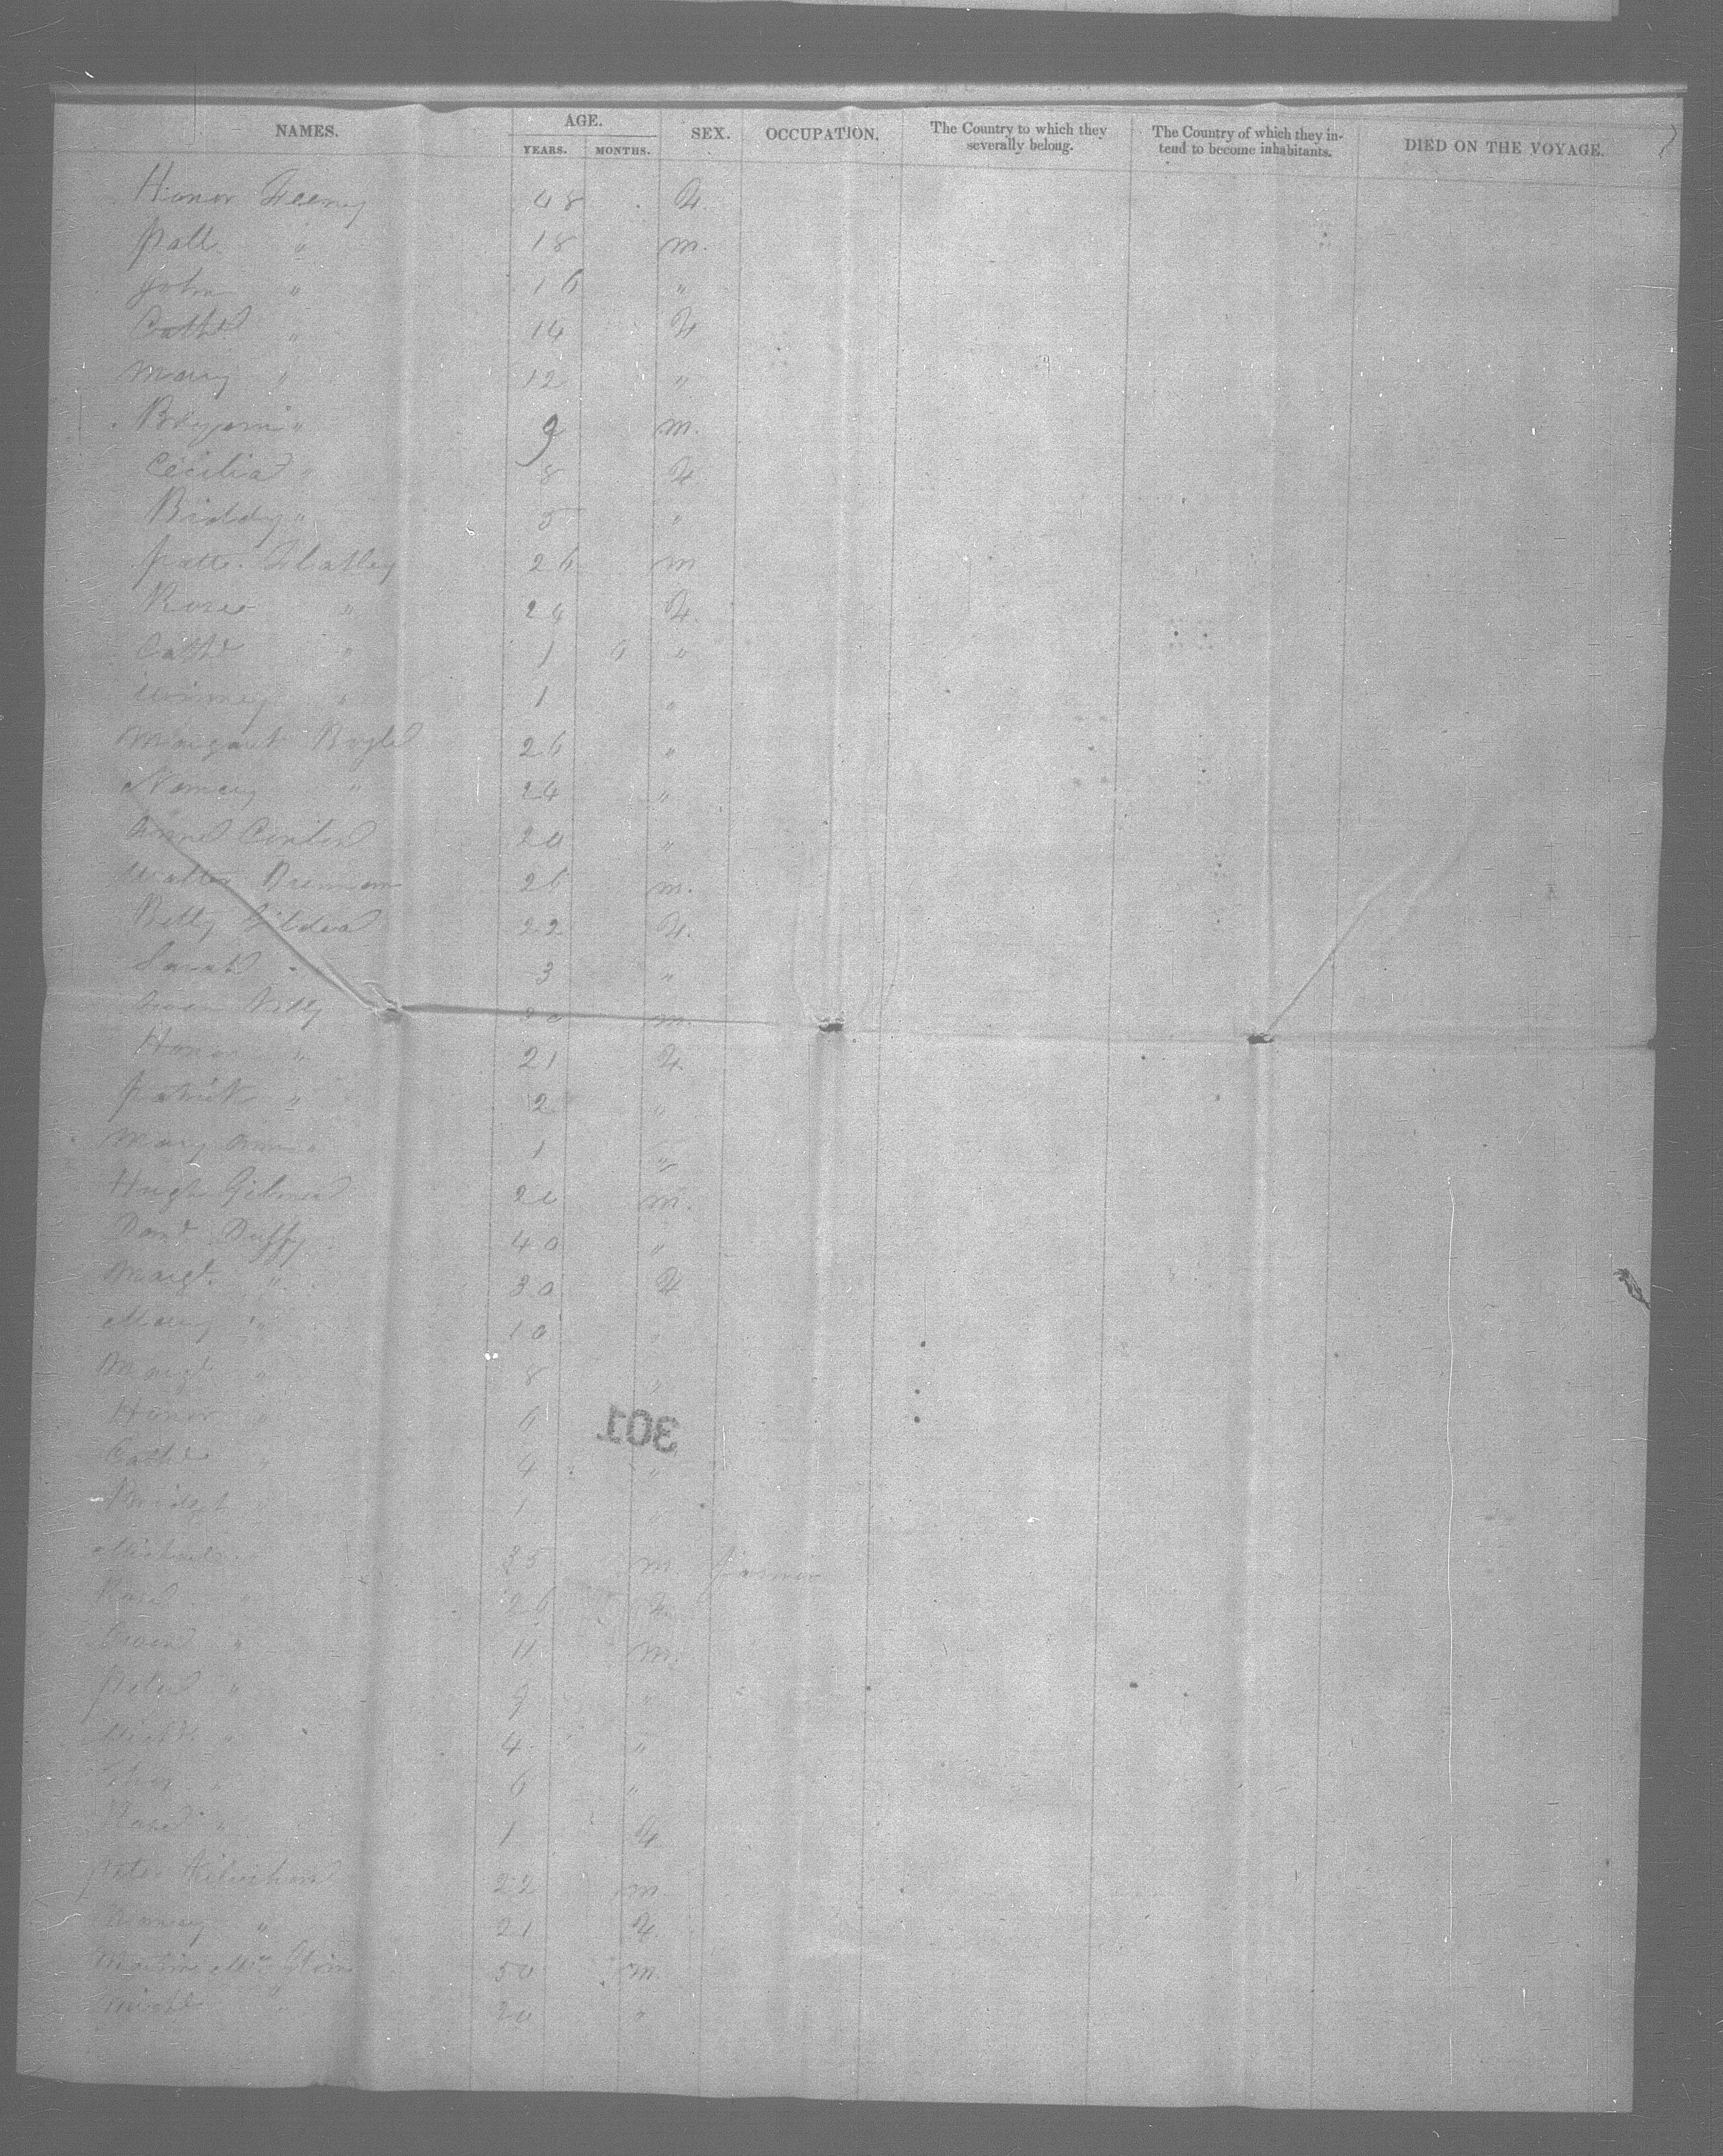 NAMES. AGE. YEARS. MONTHS. SEX. OCCUPATION. The Country to which they severally belong. The Country of which they intend to become inhabitants. DIED ON THE VOYAGE.
Honor Feeney 48 F.
Patt. " 18 m.
John " 16 "
Cathe " 14 F
Mary " 12 "
Benjamin " 9 m.
Cecilia " 8 F
Biddy " 5 "
Patt. Flatley 26 m
Rose " 24 F.
Cathe " 1 6 "
Winney " 1 "
Margaret Boyle 26 "
Nancy " 24 "
Anne Conlon 20 "
Walter Brennan 26 m.
Betty Gildea 22 F.
Sarah 3 "
Owen 20 m.
Honor " 21 F
Patrick " 2 "
Mary Ann " 1 "
Hugh 20 m.
Duffy 40 "
Margt. " 30 F
Mary " 10 "
Margt " 8 "
Honor " 6
Cathe " 4 "
301.
Bridget " 1 "
Michael " 35 m. farmer
Rose " 26 F.
Owen " 11 m.
Peter " 9 "
Michl. " 4 "
" 6 "
Rose " 1 F
Peter 22 m
Nancy " 21 F.
Martin Mc 50 m.
" 20 "